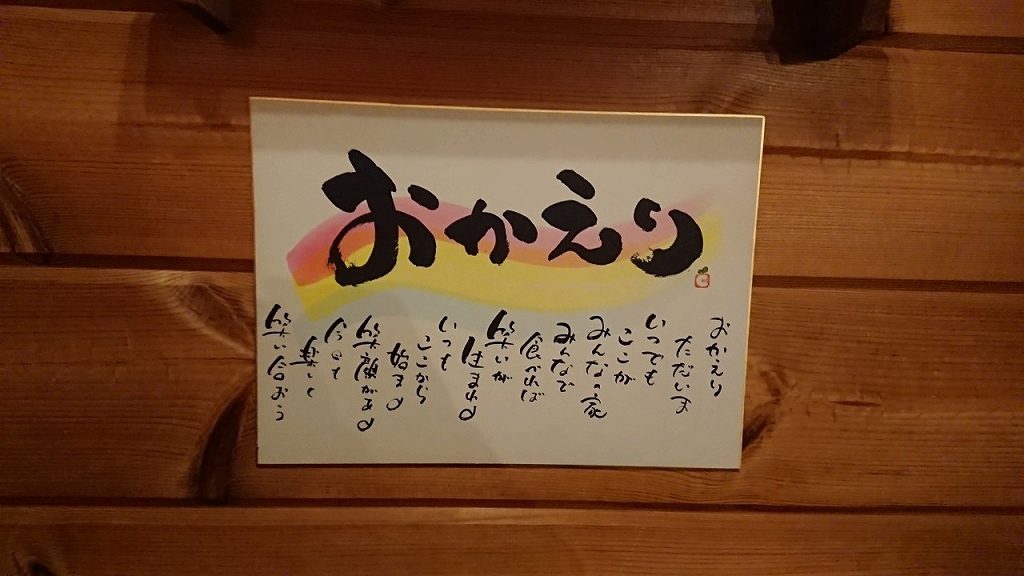 おかえり
おかえり
ただいま
いつでも
ここが
みんなの家
みんなで
食べれば
笑いが
生まれる
いつも
ここから
始まる
笑顔がある
今日も
楽しく
笑い合おう